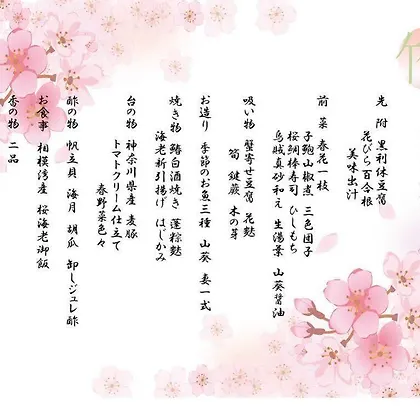 先附 黒利休豆腐
花びら百合根
美味出汁
前菜 春花一枝
子鮑山椒煮 三色団子
桜鯛棒寿司 ひしもち
烏賊真砂和え 生湯葉 山葵醤油
吸い物 蟹寄せ豆腐 花麩
筍 蕨 木の芽
お造り 季節のお魚三種 山葵 妻一式
焼き物 鰆白酒焼き 蓬粽麩
海老新引揚げ はじかみ
台の物 神奈川県産 麦豚
トマトクリーム仕立て
春野菜色々
酢の物 帆立貝 海月 胡瓜 卸しジュレ酢
お食事 相模湾産 桜海老御飯
香の物 二品